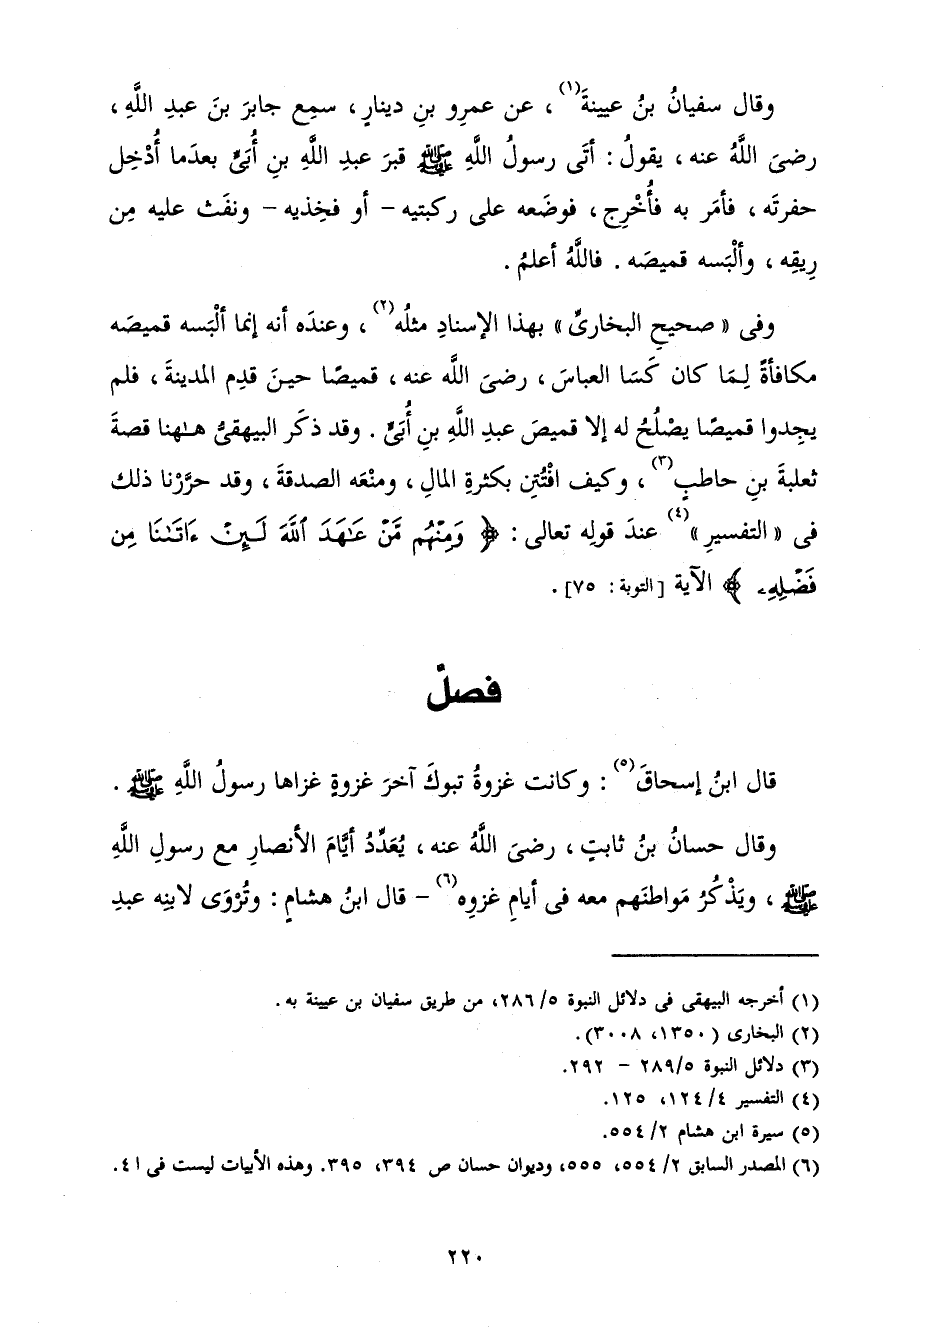 وقال سفيانُ بنُ عيينةَ(١) ، عن عمرِو بنِ دينارٍ ، سمِع جابرَ بنَ عبدِ اللَّهِ ،
رضىَ اللَّهُ عنه ، يقولُ : أتَى رسولُ اللَّهِ ﷺ قبرَ عبدِ اللَّهِ بنِ أُبَىٍّ بعدَما أُدْخِل
حفرتَه ، فأمَر به فأُخْرِج ، فوضَعه على ركبتيه - أو فخِذيه - ونفَث عليه مِن
رِيقِه ، وألْبَسه قميصَه . فاللَّهُ أعلمُ .
وفى « صحيحِ البخارىِّ » بهذا الإسنادِ مثلُه(٢) ، وعندَه أنه إنما ألْبَسه قميصَه
مكافأةً لِمَا كان كَسَا العباسَ ، رضىَ اللَّه عنه ، قميصًا حينَ قدِم المدينةَ ، فلم
يجِدوا قميصًا يصْلُحُ له إلا قميصَ عبدِ اللَّهِ بنِ أُبَىٍّ . وقد ذكَر البيهقىُّ هـٰهنا قصةَ
ثعلبةَ بنِ حاطبٍ(٣) ، وكيف افْتُتِن بكثرةِ المالِ ، ومنْعَه الصدقةَ ، وقد حرَّرْنا ذلك
فى « التفسيرِ »(٤) عندَ قولِه تعالى : ﴿ وَمِنْهُم مَّنْ عَـٰهَدَ ٱللَّهَ لَئِنْ ءَاتَىٰنَا مِن
فَضْلِهِۦ ﴾ الآية [التوبة : ٧٥] .
فصلٌ
قال ابنُ إسحاقَ(٥) : وكانت غزوةُ تبوكَ آخرَ غزوةٍ غزاها رسولُ اللَّهِ ﷺ .
وقال حسانُ بنُ ثابتٍ ، رضىَ اللَّهُ عنه ، يُعَدِّدُ أيَّامَ الأنصارِ مع رسولِ اللَّهِ
ﷺ ، ويَذْكُرُ مَواطنَهم معه فى أيامِ غزوِه(٦) - قال ابنُ هشامٍ : وتُرْوَى لابنِه عبدِ
(١) أخرجه البيهقى فى دلائل النبوة ٥/ ٢٨٦، من طريق سفيان بن عيينة به .
(٢) البخارى ( ١٣٥٠، ٣٠٠٨).
(٣) دلائل النبوة ٢٨٩/٥ - ٢٩٢.
(٤) التفسير ٤/ ١٢٤، ١٢٥.
(٥) سيرة ابن هشام ٢/ ٥٥٤.
(٦) المصدر السابق ٢/ ٥٥٤، ٥٥٥، وديوان حسان ص ٣٩٤، ٣٩٥. وهذه الأبيات ليست فى ا ٤.
٢٢٠